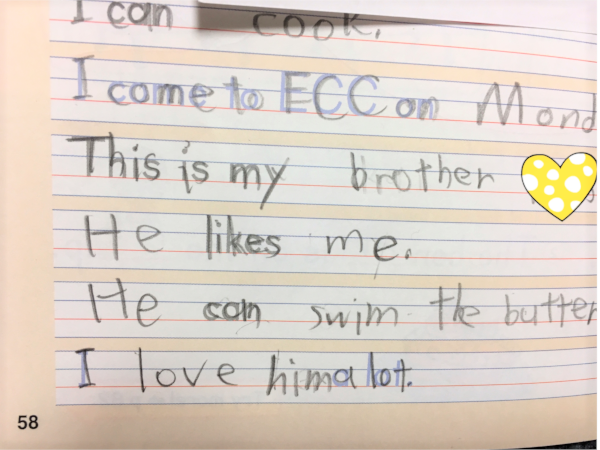 I can cook.
I come to ECC on Mond
This is my brother
He likes me.
He can swim the butter
I love him a lot.
58